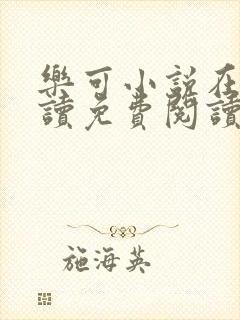 樂可小說在
讀免費閱讀
施海英